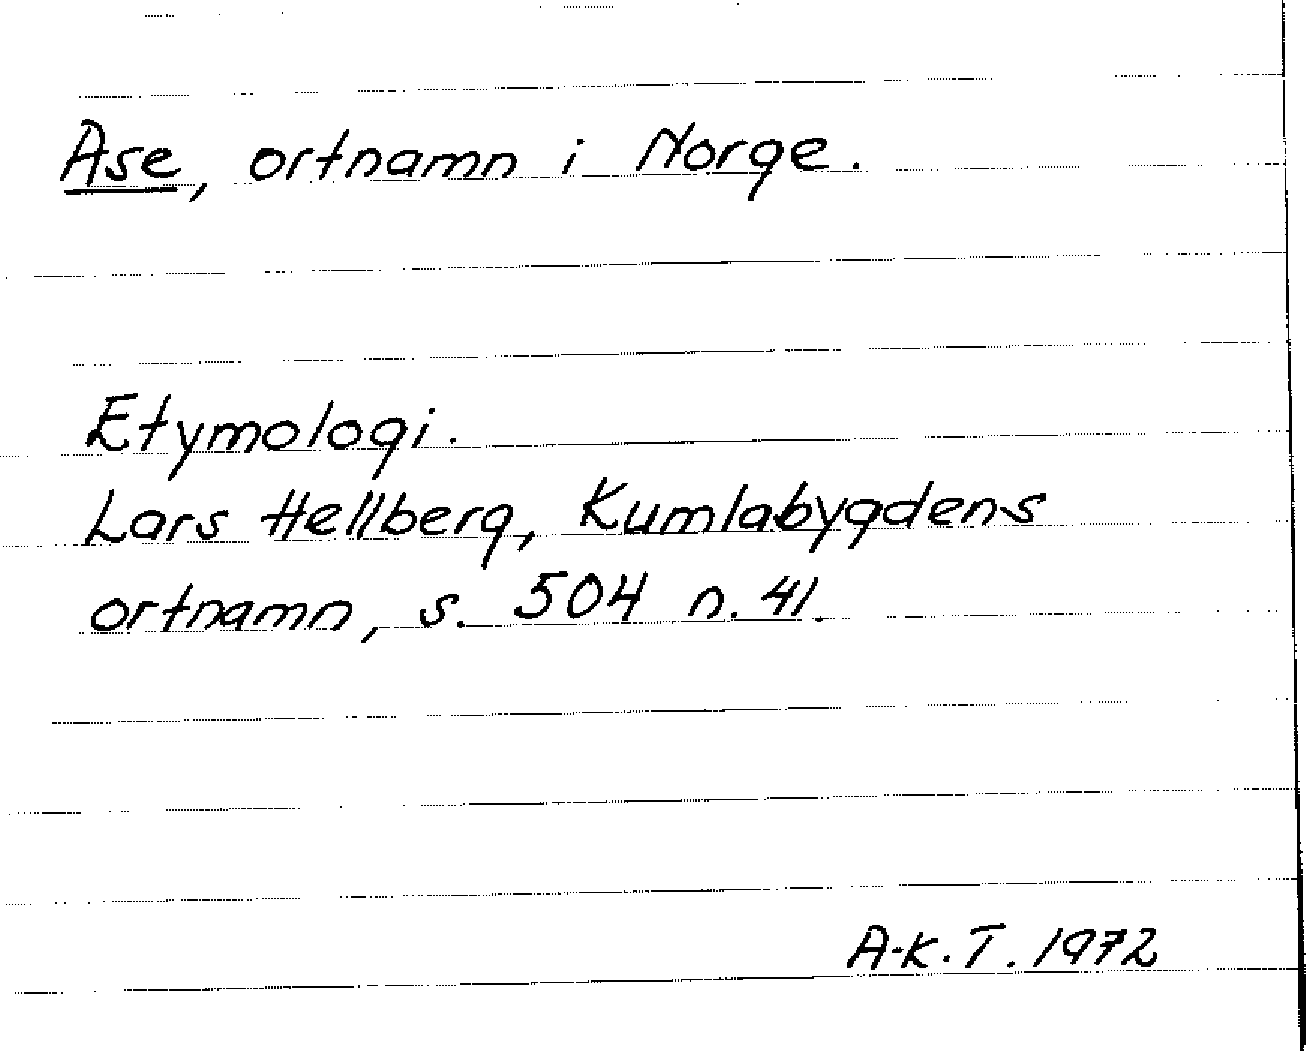 Ase, ortnamn i Norge.
Etymologi.
Lars Hellberg, Kumlabygdens
ortnamn, s. 504 n. 41.
A-K. T. 1972